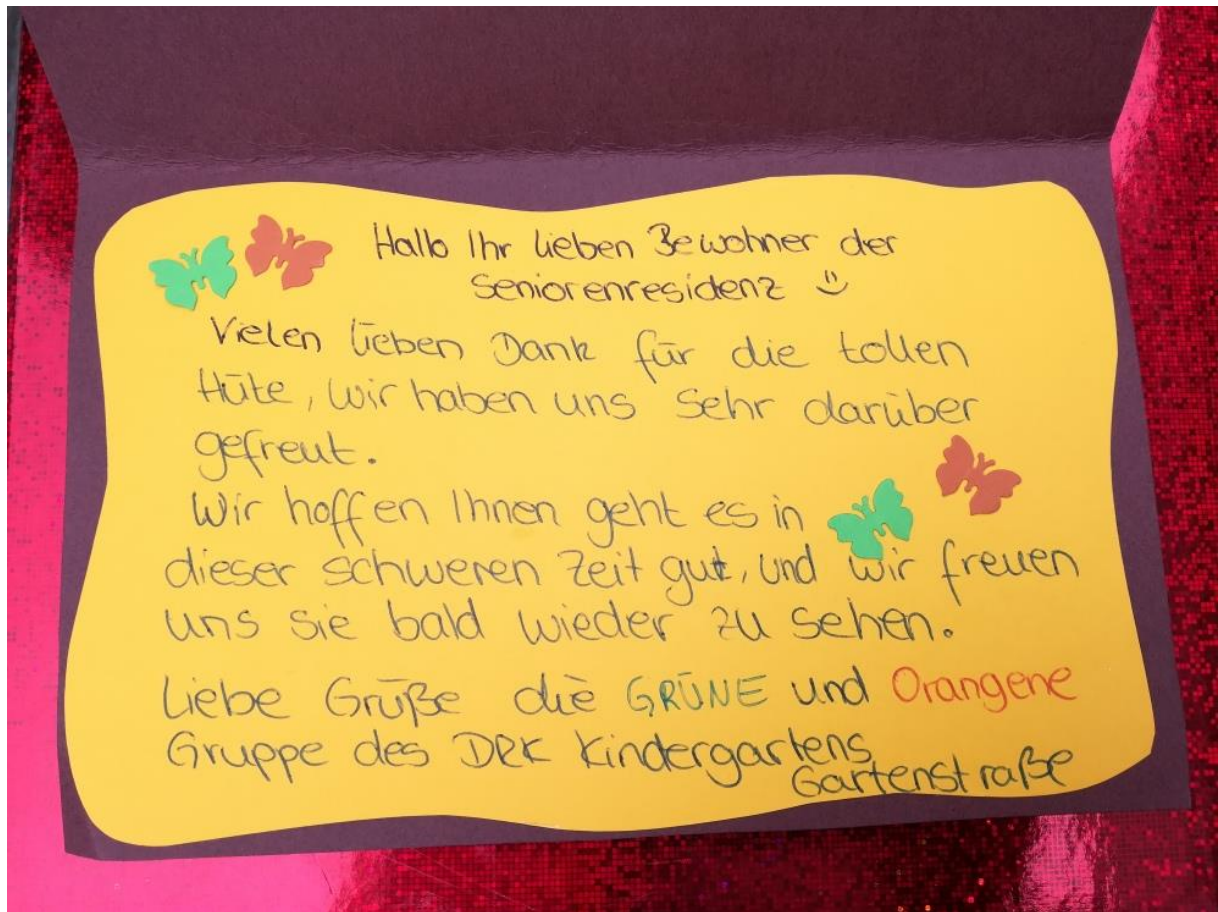 Hallo Ihr lieben Bewohner der
Seniorenresidenz :)
Vielen lieben Dank für die tollen
Hüte, wir haben uns sehr darüber
gefreut.
Wir hoffen Ihnen geht es in
dieser schweren Zeit gut, und wir freuen
uns sie bald wieder zu sehen.
Liebe Grüße die GRÜNE und Orangene
Gruppe des DRK Kindergartens
Gartenstraße